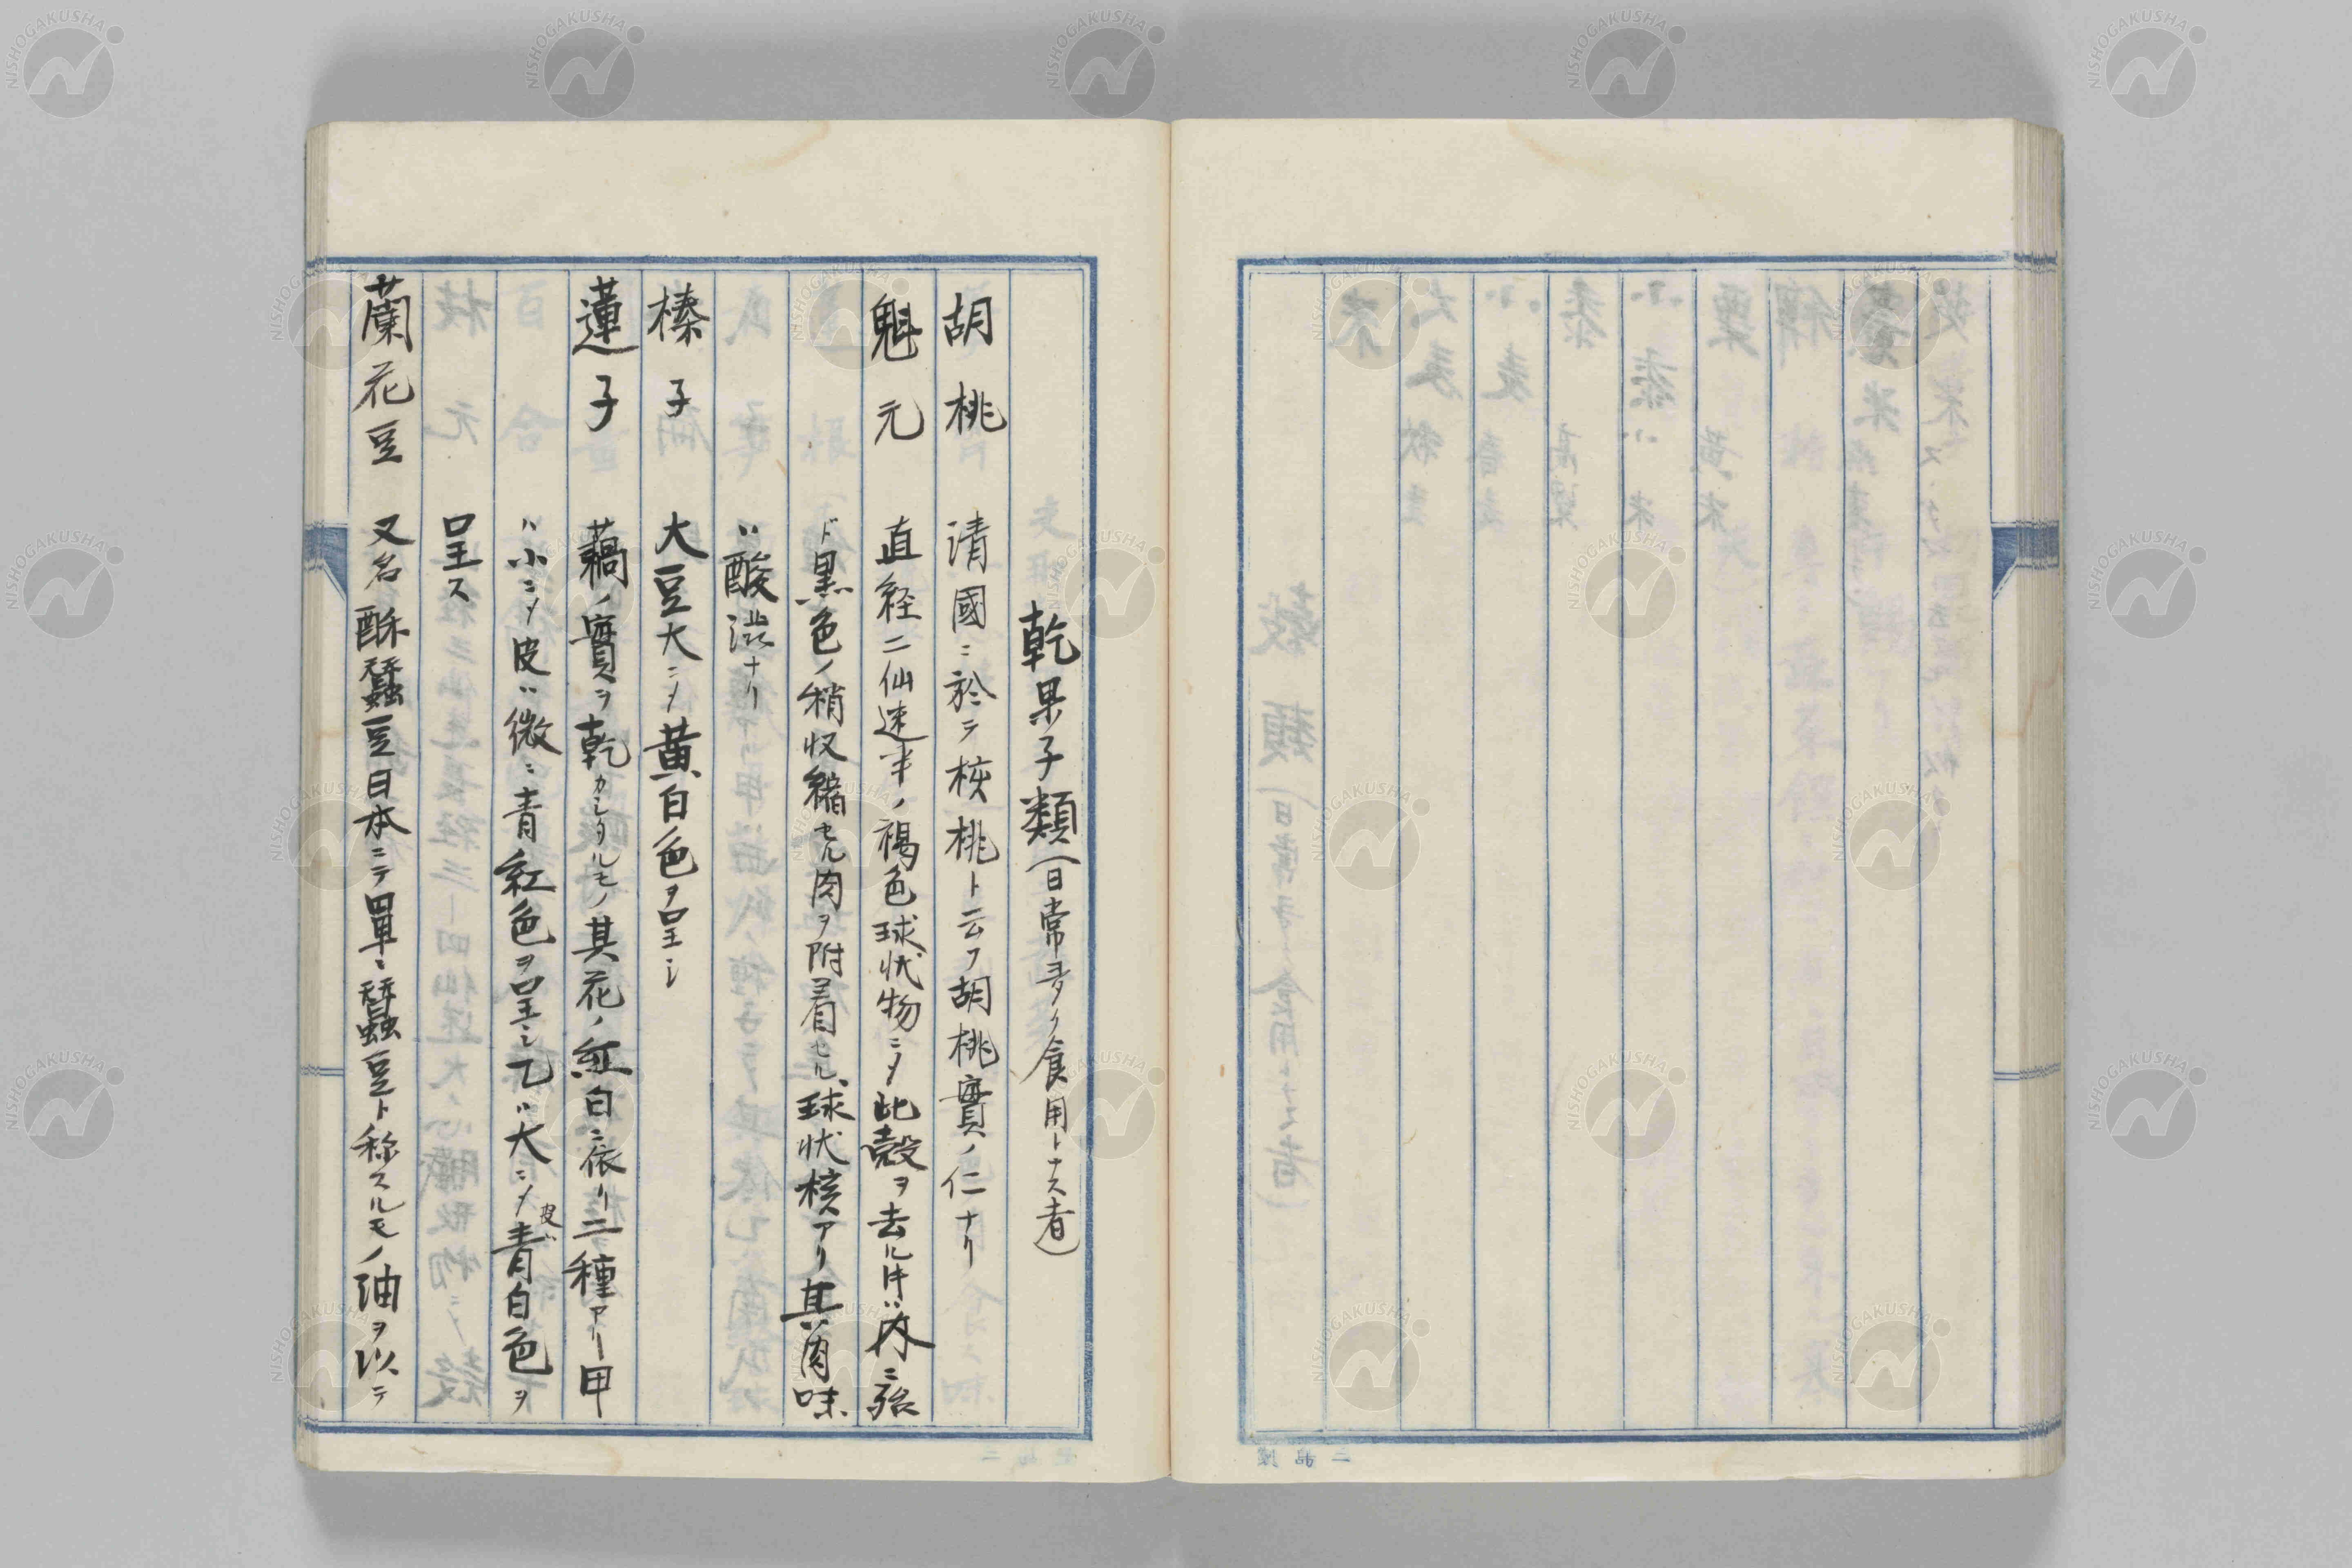 乾果子類(日常多ク食用トナス者)
胡桃 清國ニ於テ核桃ト云フ胡桃實ノ仁ナリ
魁元 直経二仙迷半ノ褐色球状物ニ〆此殻ヲ去ル𪜈ハ内ニ殆
ド黒色ノ稍収縮セル肉ヲ附着セル球状核アリ其肉味
ハ酸澁ナリ
榛子 大豆大ニ〆黄白色ヲ呈シ
蓮子 藕ノ實ヲ乾カシタルモノ其花ノ紅白ニ依リ二種アリ甲
ハ小ニ〆皮ハ微ニ青紅色ヲ呈シ乙ハ大ニ〆皮ハ青白色ヲ
呈ス
蘭花豆 又名酥蠶豆日本ニテ單ニ蠶豆ト称スルモノ油ヲ以テ